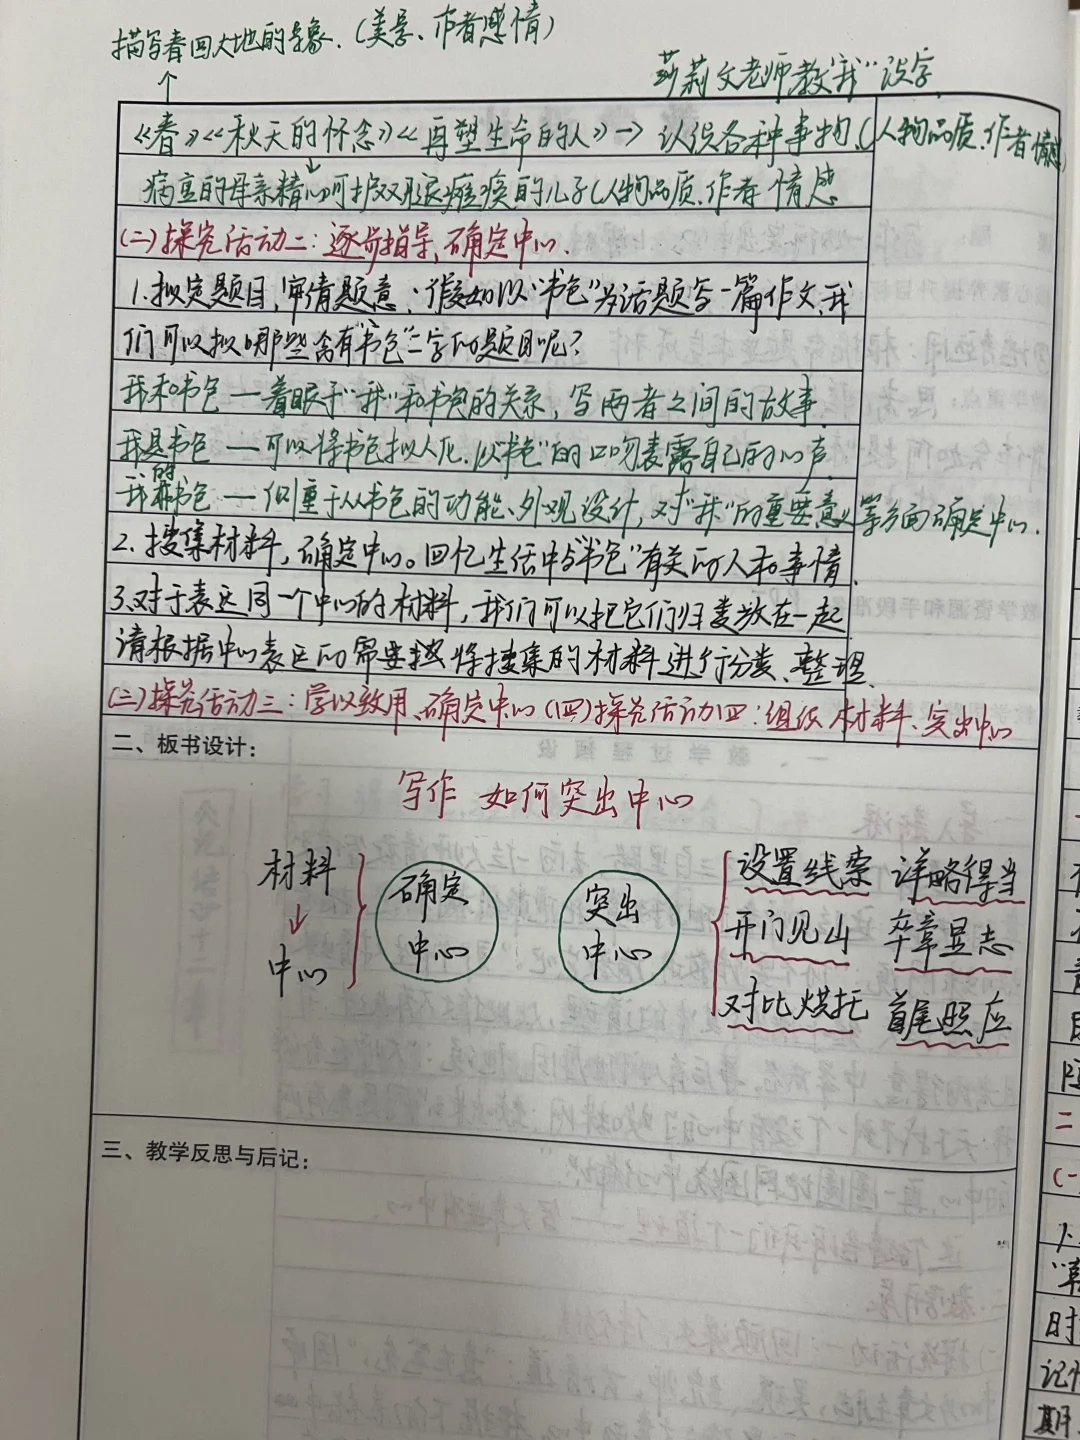 描写春回大地的景象.(美景、作者感情)
莎莉文老师教"我"识字
《春》《秋天的怀念》《再塑生命的人》→认识各种事物.(人物品质、作者情感)
病重的母亲精心呵护双腿瘫痪的儿子(人物品质、作者情感
(二)探究活动二:逐步指导,确定中心.
1.拟定题目,审清题意:假如以"书包"为话题写一篇作文,我
们可以拟哪些含有"书包"二字的题目呢?
我和书包——着眼于"我"和书包的关系,写两者之间的故事.
我是书包——可以将书包拟人化.以"书包"的口吻表露自己的心声
我的书包——侧重于从书包的功能、外观设计,对"我"的重要意义等方面确定中心.
2.搜集材料,确定中心。回忆生活中与"书包"有关的人和事情.
3.对于表达同一个中心的材料,我们可以把它们归类放在一起
请根据中心表达的需要将搜集的材料进行分类、整理.
(三)探究活动三:学以致用、确定中心(四)探究活动四:组织材料、突出中心
二、板书设计:
写作 如何突出中心
材料
↓
中心
确定
中心
突出
中心
设置线索 详略得当
开门见山 卒章显志
对比烘托 首尾照应
三、教学反思与后记: